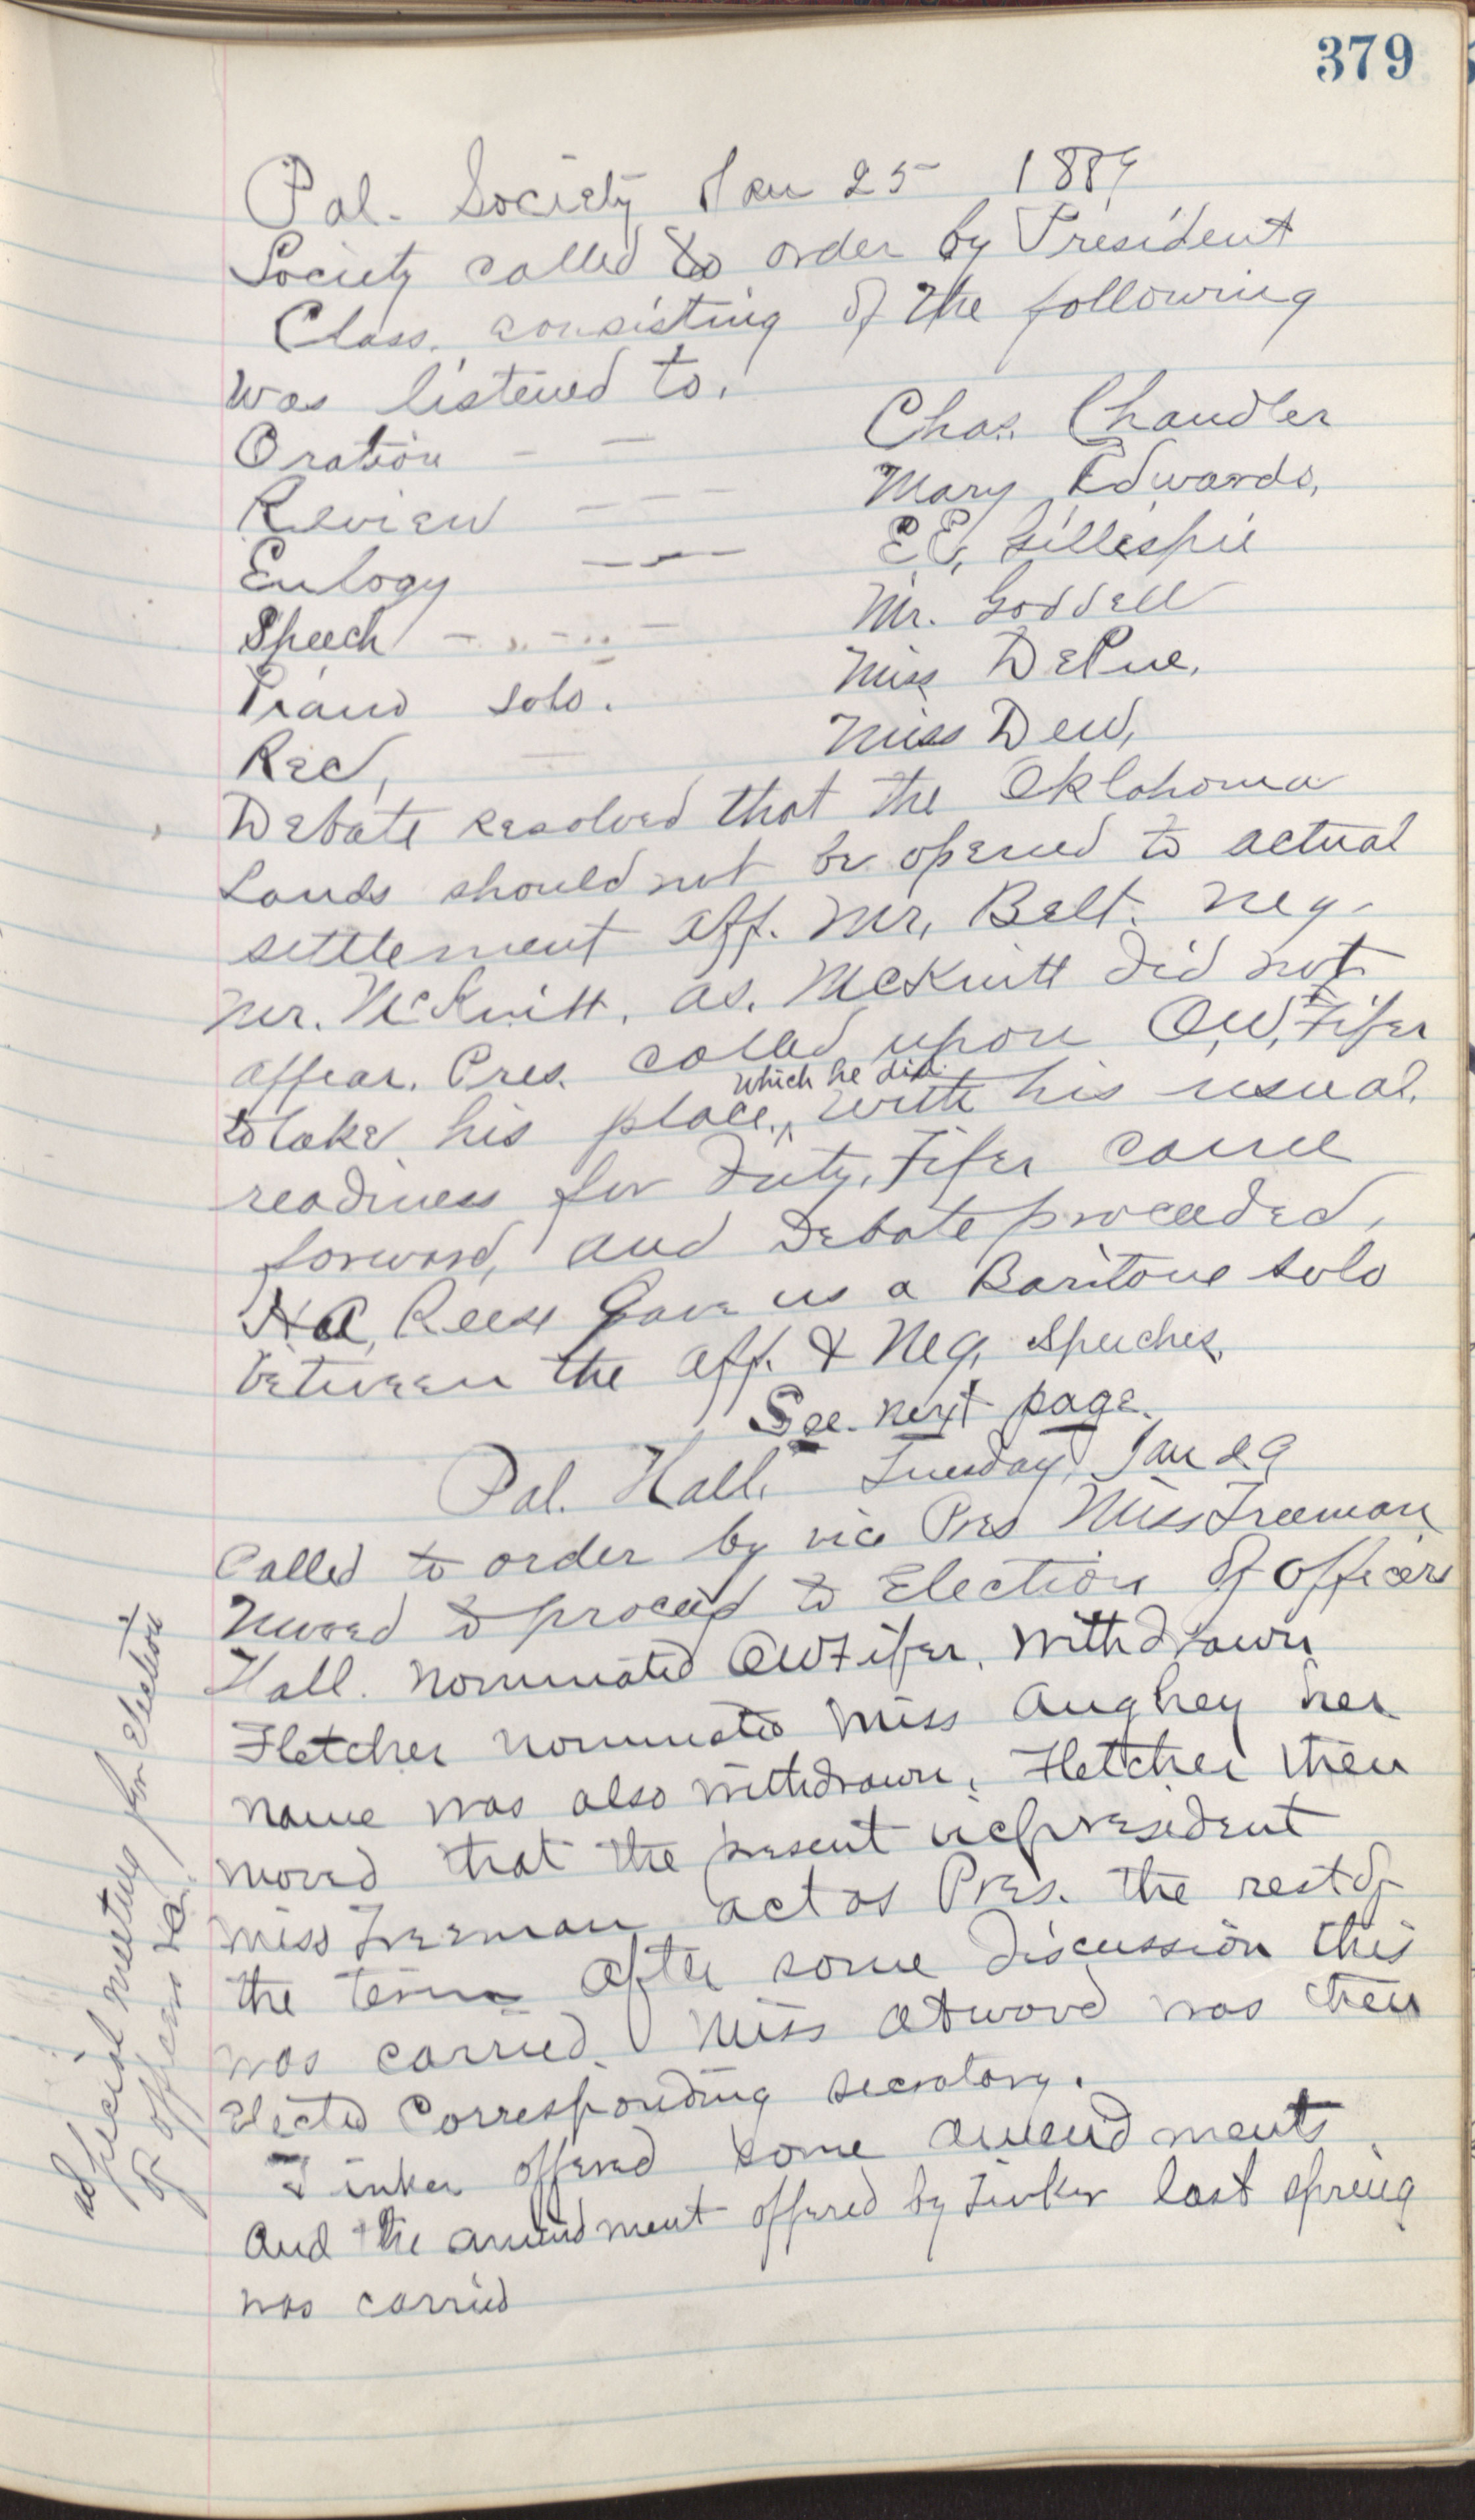 379
Pal. Society Jan 25 1889
Society called to order by President
Class. consisting of the following
was listened to.
Oration - - Chas. Chandler
Review - - - Mary Edwards,
Eulogy - - - E.E. Gillespie
Speech - - - Mr. Goddell
Piano solo. Miss DePue,
Rec, - Miss Dew,
Debate resolved that the Oklahoma
Lands should not be opened to actual
settlement aff. Mr, Belt. Neg.
Mr. McKnitt, as. McKnitt did not
appear. Pres. called upon O.W. Fifer
to take his place, which he did. with his usual
readiness for duty, Fifer came
forward, and Debate proceeded,
H.A. Reese Gave us a Baritone solo
between the aff. & Neg, speeches,
See next page.
Pal. Hall. Tuesday, Jan 29
Called to order by vice Pres Miss Freeman
Moved to proceed to Election of officers
Hall. nominated OW Fifer. withdrawn
Fletcher nominated Miss Aughey her
name was also withdrawn. Fletcher then
moved that the present vicpresident
miss Freeman act as Pres. the rest of
the term After some discussion this
was carried. Miss Atwood was then
Elected Corresponding secratary.
Tinker offered some amendments.
And the amendment offered by Tinker last spring
was carried
special meeting for Election
of officers